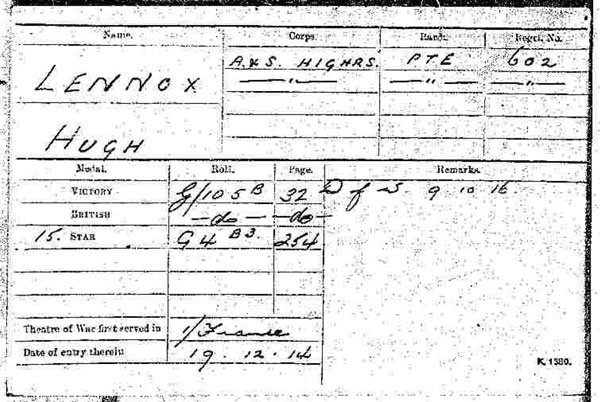 Name. Corps. Rank. Regtl. No.
LENNOX A.&S. HIGHRS. PTE 602
— " — — " — — " —
HUGH
Medal. Roll. Page. Remarks.
VICTORY G/105 B 32 D of W. 9.10.16
BRITISH — do — — do —
15. STAR G4 B3. 254
Theatre of War first served in 1/France
Date of entry therein 19.12.14
K. 1380.